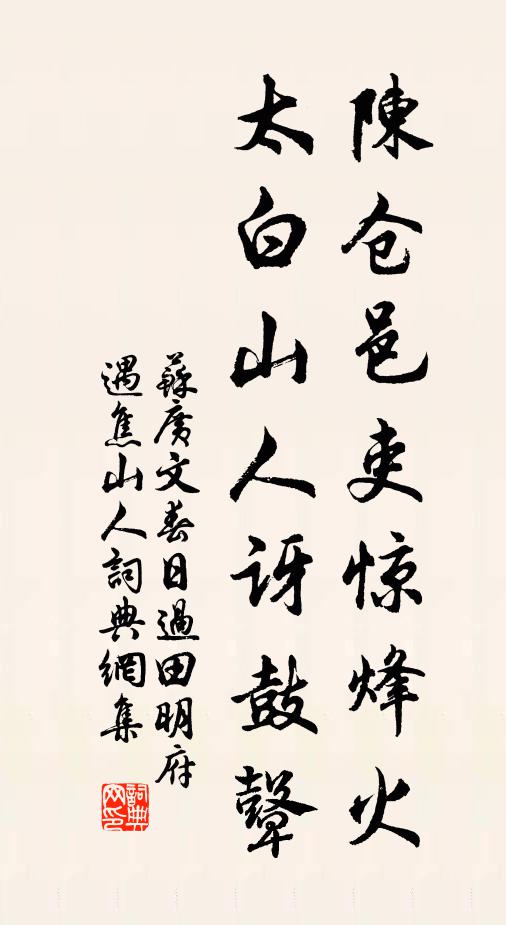 陳仓邑吏惊烽火
太白山人讶鼓鼙
蘇廣文春日過田明府
遇焦山人詞典網集
詞典
网印